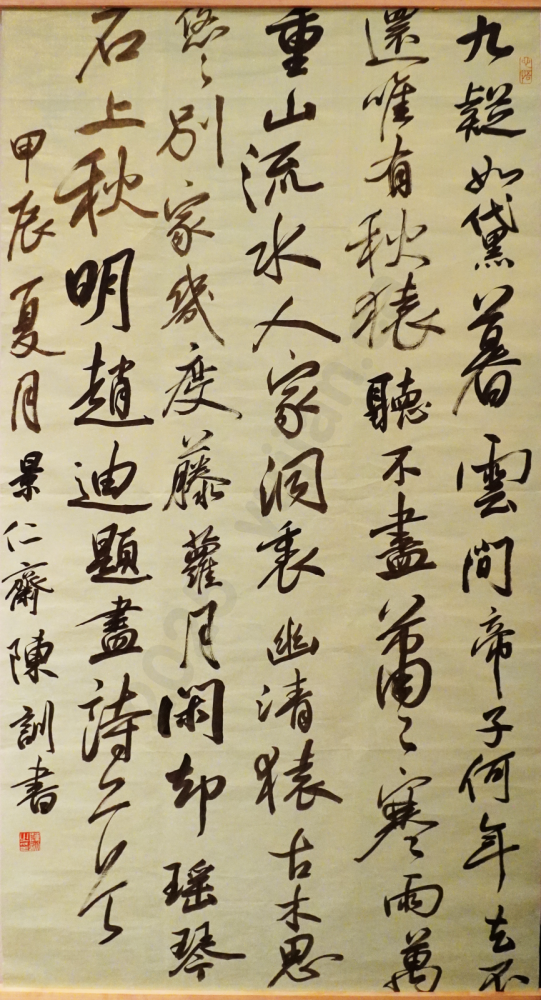 九疑如黛暮雲間帝子何年去不
還唯有秋猿聽不盡蕭々寒雨萬
重山流水人家洞裏幽清猿古木思
悠々別家幾度藤蘿月閑却瑤琴
石上秋明趙迪題畫詩二首
甲辰夏月景仁齋陳訓書